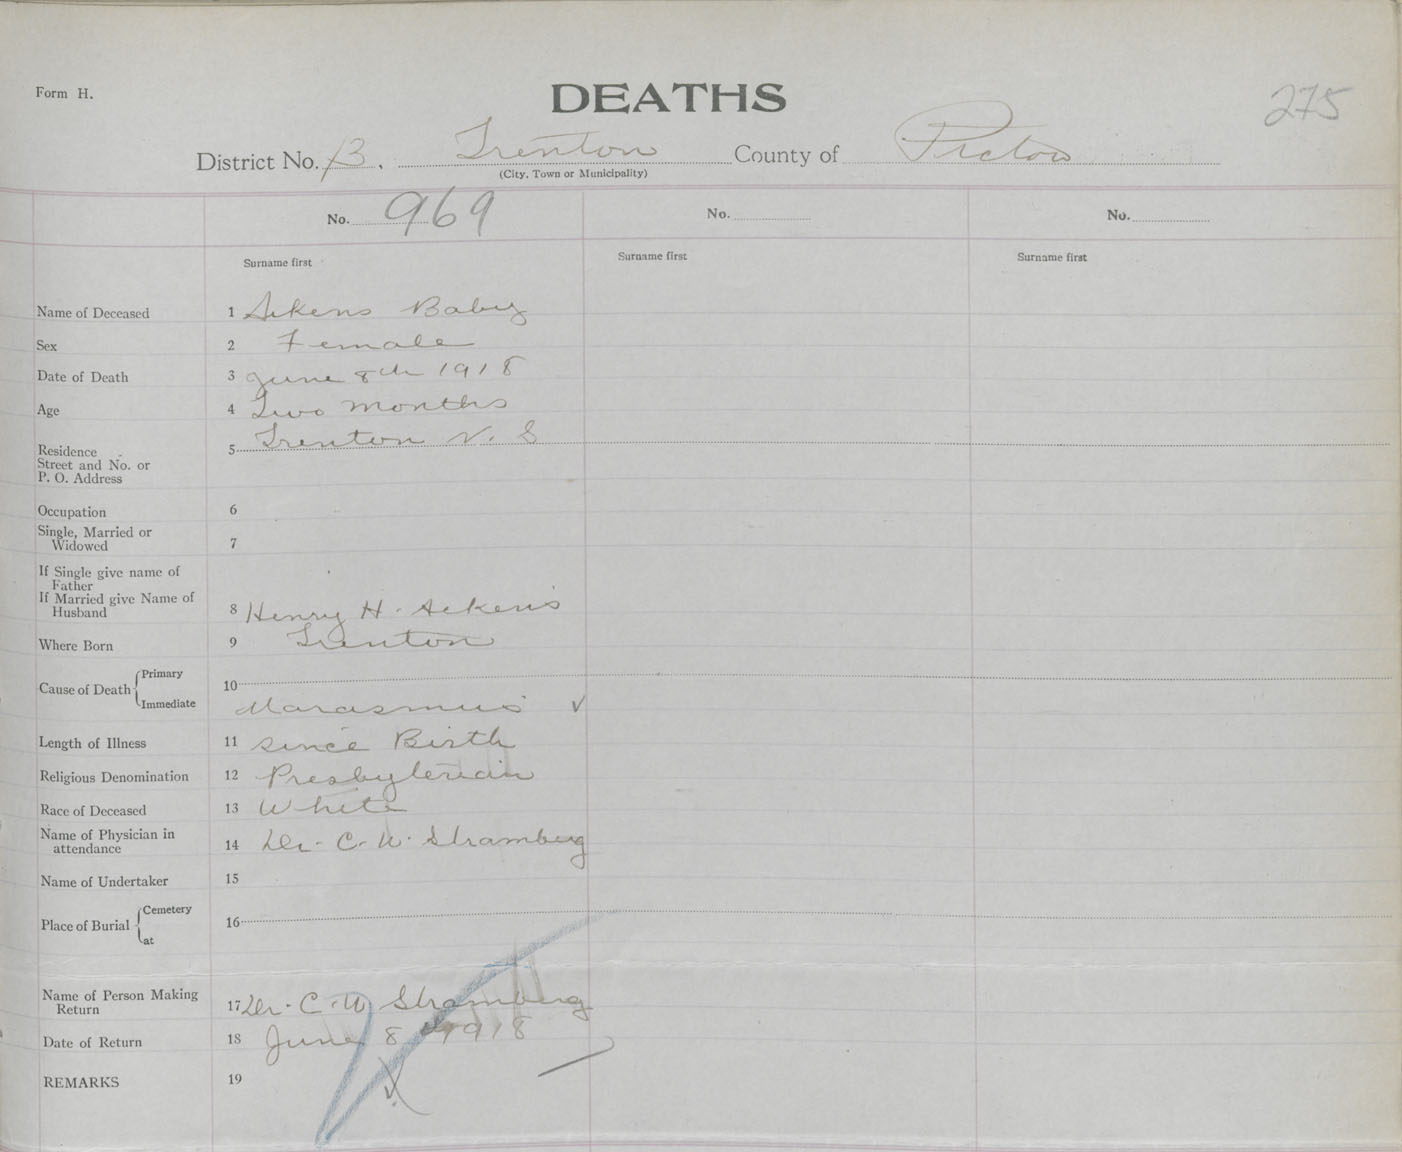 Form H.
DEATHS
275
District No. 13. Trenton County of Pictou
(City, Town or Municipality)
No. 969 No. No.
Surname first Surname first Surname first
Name of Deceased 1 Aikens Baby
Sex 2 Female
Date of Death 3 June 8th 1918
Age 4 Two months
Residence 5 Trenton N. S
Street and No. or
P. O. Address
Occupation 6
Single, Married or
Widowed 7
If Single give name of
Father
If Married give Name of
Husband 8 Henry H. Aikens
Where Born 9 Trenton
Cause of Death Primary 10
Immediate Marasmus
Length of Illness 11 since Birth
Religious Denomination 12 Presbyterian
Race of Deceased 13 White
Name of Physician in
attendance 14 Dr. C. W. Stramberg
Name of Undertaker 15
Place of Burial Cemetery 16
at
Name of Person Making
Return 17 Dr. C. W Stramberg
Date of Return 18 June 8th 1918
REMARKS 19